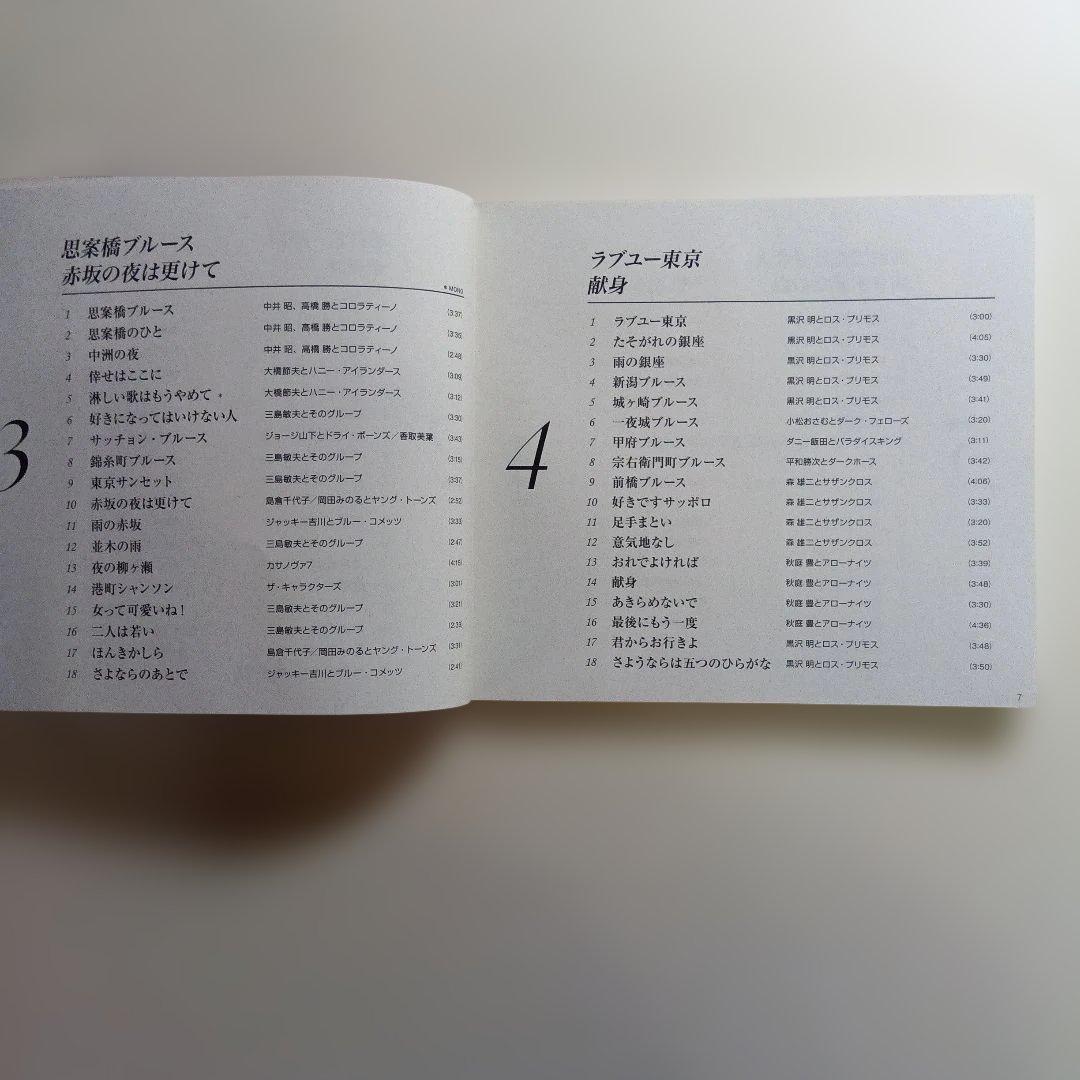 思案橋ブルース
赤坂の夜は更けて
* MONO
3
1 思案橋ブルース 中井 昭、高橋 勝とコロラティーノ (3:37)
2 思案橋のひと 中井 昭、高橋 勝とコロラティーノ (3:36)
3 中洲の夜 中井 昭、高橋 勝とコロラティーノ (2:48)
4 倖せはここに 大橋節夫とハニー・アイランダース (3:09)
5 淋しい歌はもうやめて * 大橋節夫とハニー・アイランダース (3:12)
6 好きになってはいけない人 三島敏夫とそのグループ (3:30)
7 サッチョン・ブルース ジョージ山下とドライ・ボーンズ/香取美葉 (3:43)
8 錦糸町ブルース 三島敏夫とそのグループ (3:15)
9 東京サンセット 三島敏夫とそのグループ (3:37)
10 赤坂の夜は更けて 島倉千代子/岡田みのるとヤング・トーンズ (2:52)
11 雨の赤坂 ジャッキー吉川とブルー・コメッツ (3:33)
12 並木の雨 三島敏夫とそのグループ (2:47)
13 夜の柳ヶ瀬 カサノヴァ7 (4:15)
14 港町シャンソン ザ・キャラクターズ (3:01)
15 女って可愛いね! 三島敏夫とそのグループ (3:21)
16 二人は若い 三島敏夫とそのグループ (2:39)
17 ほんきかしら 島倉千代子/岡田みのるとヤング・トーンズ (3:31)
18 さよならのあとで ジャッキー吉川とブルー・コメッツ (2:41)
ラブユー東京
献身
4
1 ラブユー東京 黒沢 明とロス・プリモス (3:00)
2 たそがれの銀座 黒沢 明とロス・プリモス (4:05)
3 雨の銀座 黒沢 明とロス・プリモス (3:30)
4 新潟ブルース 黒沢 明とロス・プリモス (3:49)
5 城ヶ崎ブルース 黒沢 明とロス・プリモス (3:41)
6 一夜城ブルース 小松おさむとダーク・フェローズ (3:20)
7 甲府ブルース ダニー飯田とパラダイスキング (3:11)
8 宗右衛門町ブルース 平和勝次とダークホース (3:42)
9 前橋ブルース 森 雄二とサザンクロス (4:06)
10 好きですサッポロ 森 雄二とサザンクロス (3:33)
11 足手まとい 森 雄二とサザンクロス (3:20)
12 意気地なし 森 雄二とサザンクロス (3:52)
13 おれでよければ 秋庭 豊とアローナイツ (3:39)
14 献身 秋庭 豊とアローナイツ (3:48)
15 あきらめないで 秋庭 豊とアローナイツ (3:30)
16 最後にもう一度 秋庭 豊とアローナイツ (4:36)
17 君からお行きよ 黒沢 明とロス・プリモス (3:48)
18 さようならは五つのひらがな 黒沢 明とロス・プリモス (3:50)
7